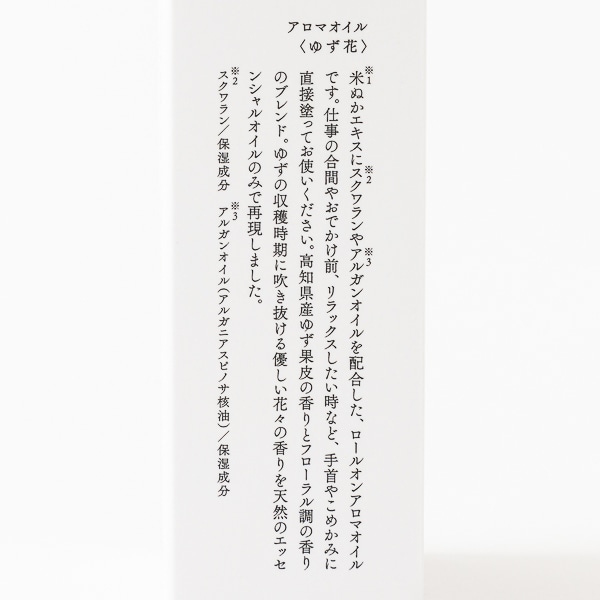 アロマオイル
〈ゆず花〉
米ぬかエキス※1にスクワラン※2やアルガンオイル※3を配合した、ロールオンアロマオイル
です。仕事の合間やおでかけ前、リラックスしたい時など、手首やこめかみに
直接塗ってお使いください。高知県産ゆず果皮の香りとフローラル調の香り
のブレンド。ゆずの収穫時期に吹き抜ける優しい花々の香りを天然のエッセ
ンシャルオイルのみで再現しました。
※2スクワラン/保湿成分 ※3アルガンオイル(アルガニアスピノサ核油)/保湿成分